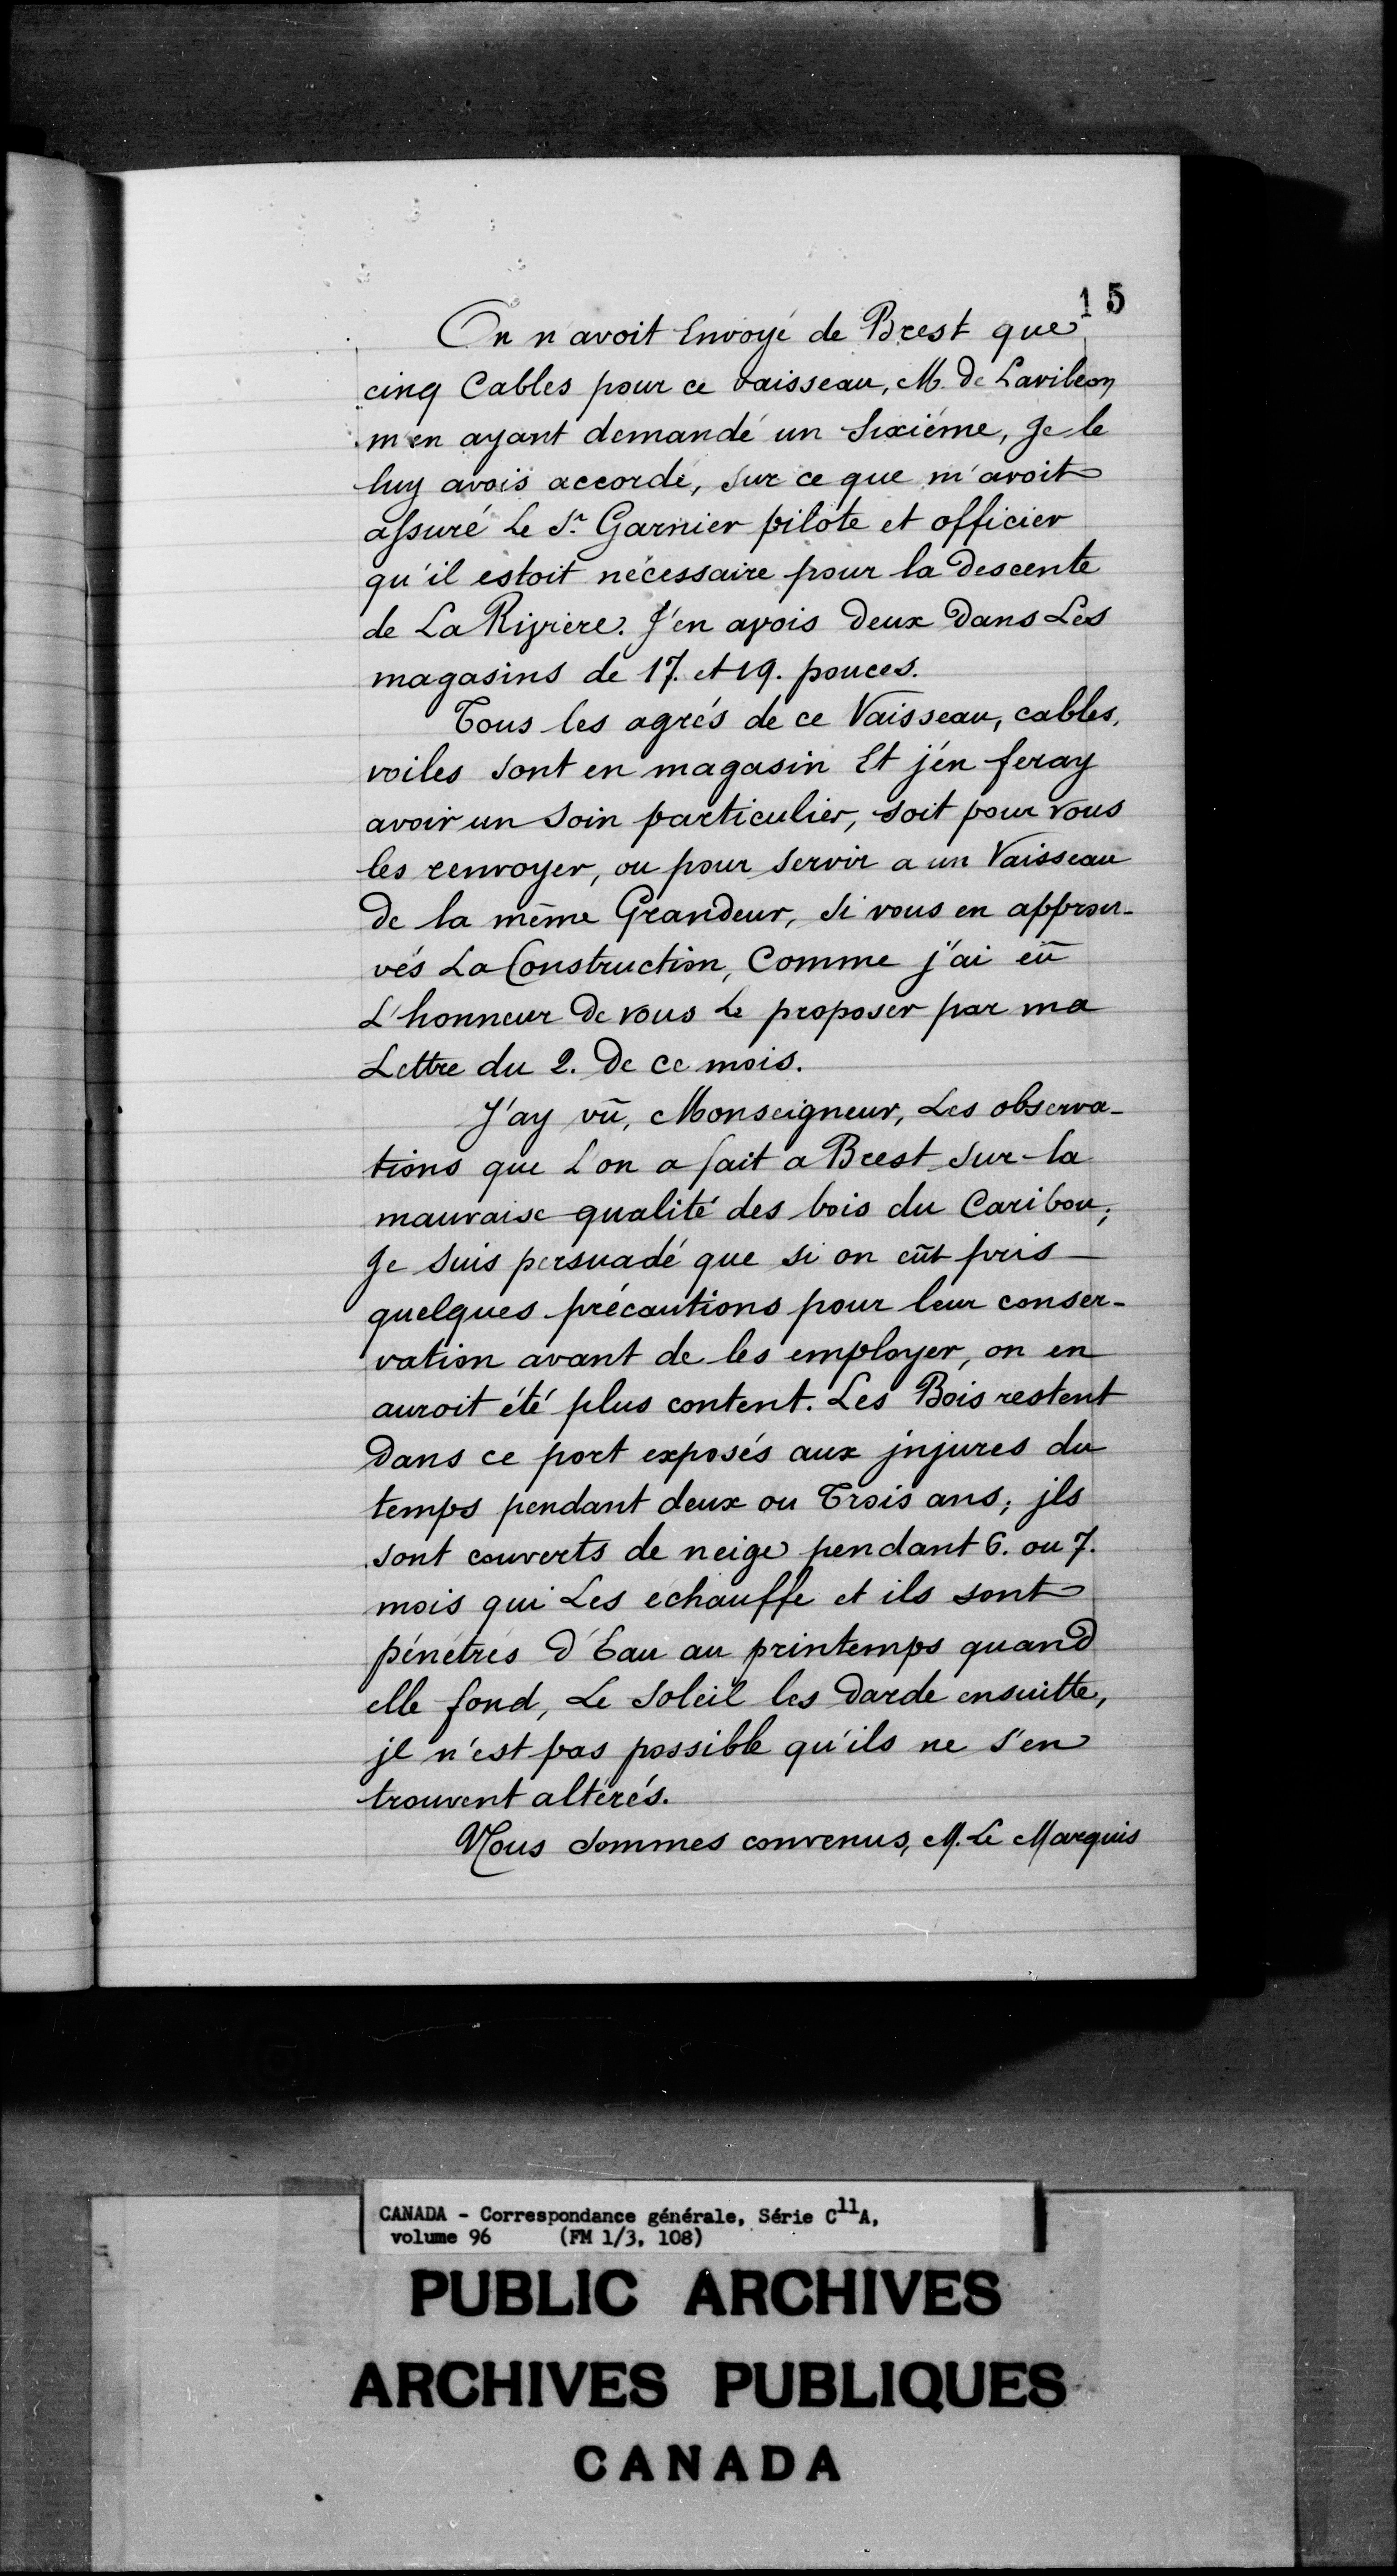 15
On n'avoit Envoyé de Brest que
cinq Cables pour ce vaisseau, M. de Lavileon
m'en ayant demandé un Sixiéme, Je le
luy avois accordé, sur ce que m'avoit
assuré Le Sr. Garnier pilote et officier
qu'il estoit nécessaire pour la descente
de La Rivière. J'en avois deux dans Les
magasins de 17. et 19. pouces.
Tous les agrés de ce Vaisseau, cables,
voiles sont en magasin Et j'en feray
avoir un Soin particulier, soit pour vous
les renvoyer, ou pour servir a un Vaisseau
de la même Grandeur, si vous en approu-
vés La Construction, Comme j'ai eû
L'honneur de vous Le proposer par ma
Lettre du 2. de ce mois.
J'ay vû, Monseigneur, Les observa-
tions que L'on a fait a Brest sur la
mauvaise qualité des bois du Caribou;
Je suis persuadé que si on eût pris
quelques précautions pour leur conser-
vation avant de les employer, on en
auroit été plus content. Les Bois restent
dans ce port exposés aux jnjures du
temps pendant deux ou Trois ans; jls
sont couverts de neige pendant 6. ou 7.
mois qui Les echauffe et ils sont
pénétrés d'Eau au printemps quand
elle fond, Le Soleil les darde ensuitte,
jl n'est pas possible qu'ils ne s'en
trouvent altérés.
Nous sommes convenus, M. Le Marquis
CANADA - Correspondance générale, Série C11A,
volume 96 (FM 1/3, 108)
PUBLIC ARCHIVES
ARCHIVES PUBLIQUES
CANADA